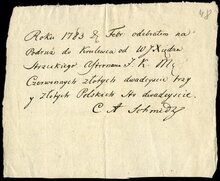 48
Roku 1783 Febr. odebrałem na
Podróż do Krolewca od W JXiędza
Strzeckiego Astronoma J. K. Mci
Czerwonych złotych dwadzieścia trzy
y złotych Polskich sto dwadzieścia
C A Schmidt